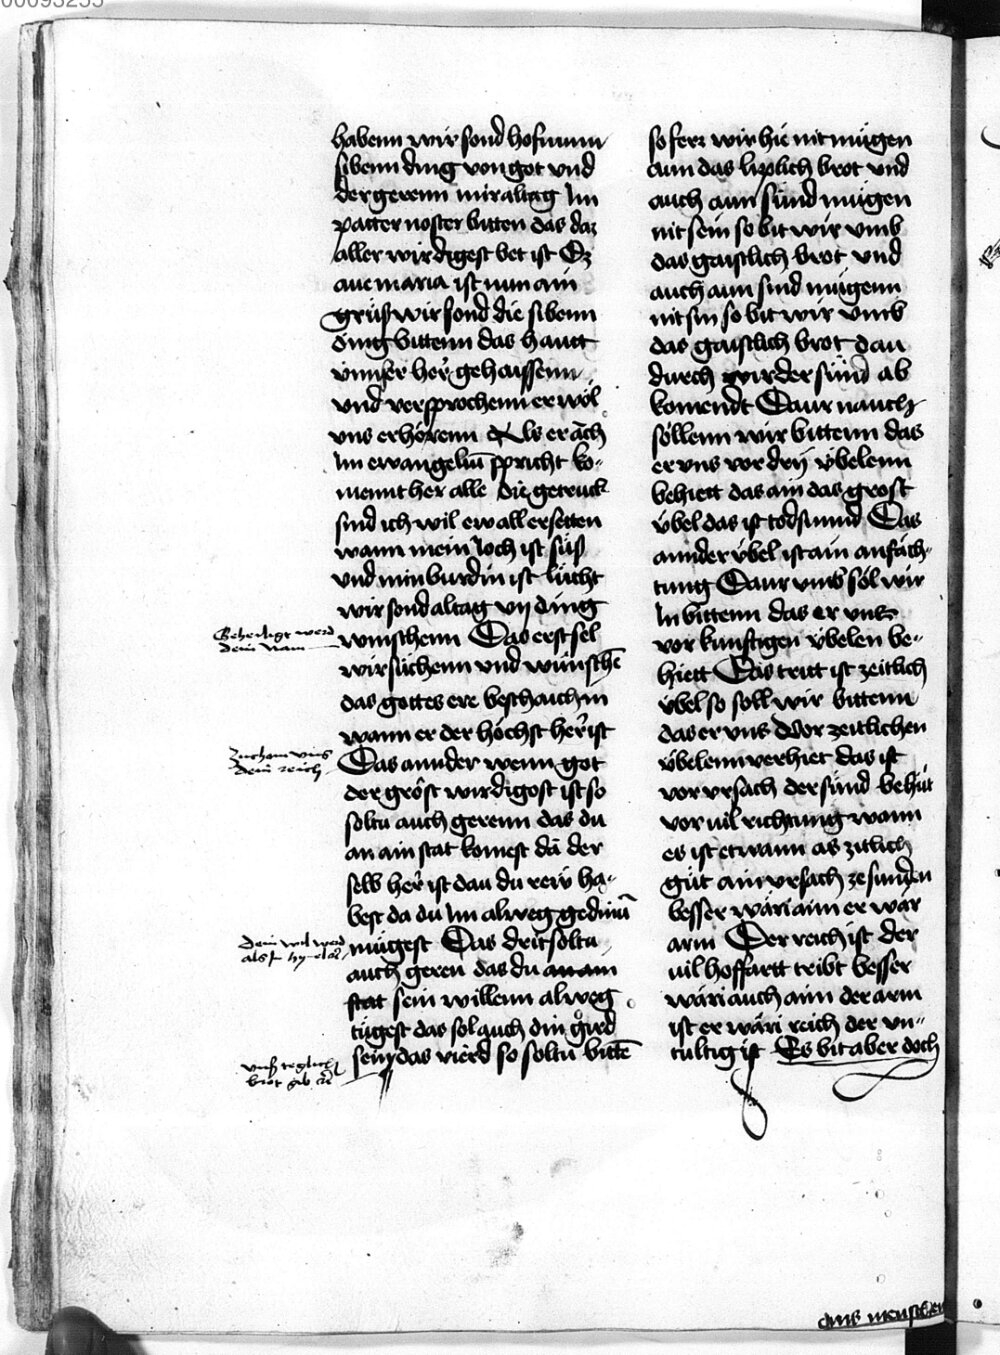 00093255
habenn wir sond hofnnnn
sibenn ding von got vnd
der gerenn mir altag Im
patter noster bitten das daz
aller wirdigest bet ist Ez
aue maria ist nun ain
grüß wir sond die sibenn
ding bittenn das hautt
vnnser her gehaissenn
vnd versprochenn er wöl
vns erhörenn Als er äch
Im ewangeliū spricht ko-
mennt her alle die getruck
sind ich wil ew all ersetten
wann mein Joch ist süß
vnd min burdin ist lücht
wir sond altag vij ding
winschenn Das erst sol
wir süchenn vnd wünschē
das gottes ere beschaich in
wann er der höchst her ist
Das annder wenn got
der gröst wirdigost ist so
soltu auch gerenn das du
an ain stat komest da der
selb her ist dau du rew ha-
best da du Im alweg gedinū
mügest Das drit soltu
auch geren das du an ain
stat sein willenn alweg
tügest das sol auch din gird
sein das vierd so soltu bittē
Geheiligt werd
dein nam
Zuchom vns
dein reich
Dein wil werd
als In hymel
vnß teglich
brot gib
so ferr wir hie nit mügen
aun das liplich brot vnd
auch aun sünd mügen
nit sein so bit wir vmb
das gaistlich brot vnd
auch aun sind mügenn
nit sin so bit wir vmb
das gaistlich brot dau
durch wir der sünd ab
komendt Daur nauch
söllenn wir bittenn das
er vns vor drij übelenn
behiett das ain das grost
übel das ist todsunnd Das
annder übel ist ain anfäch-
tung Daur vmb söl wir
In bittenn das er vns
vor kunftigen übelen be-
hiett Das tritt ist zeitlich
übel so soll wir bittenn
das er vns vor zeitlichen
übelenn verhiet das ist
vor vrsach der sünd behüt
vor uil richtung wann
es ist etwann as zitlich
güt ain vrsach ze sunden
besser wäri aim er wär
arm Der reich ist der
uil hoffartt tribt besser
wäri auch aim der arm
ist er wäri reich der vn-
tultig ist Es bit aber doch
ains menschen